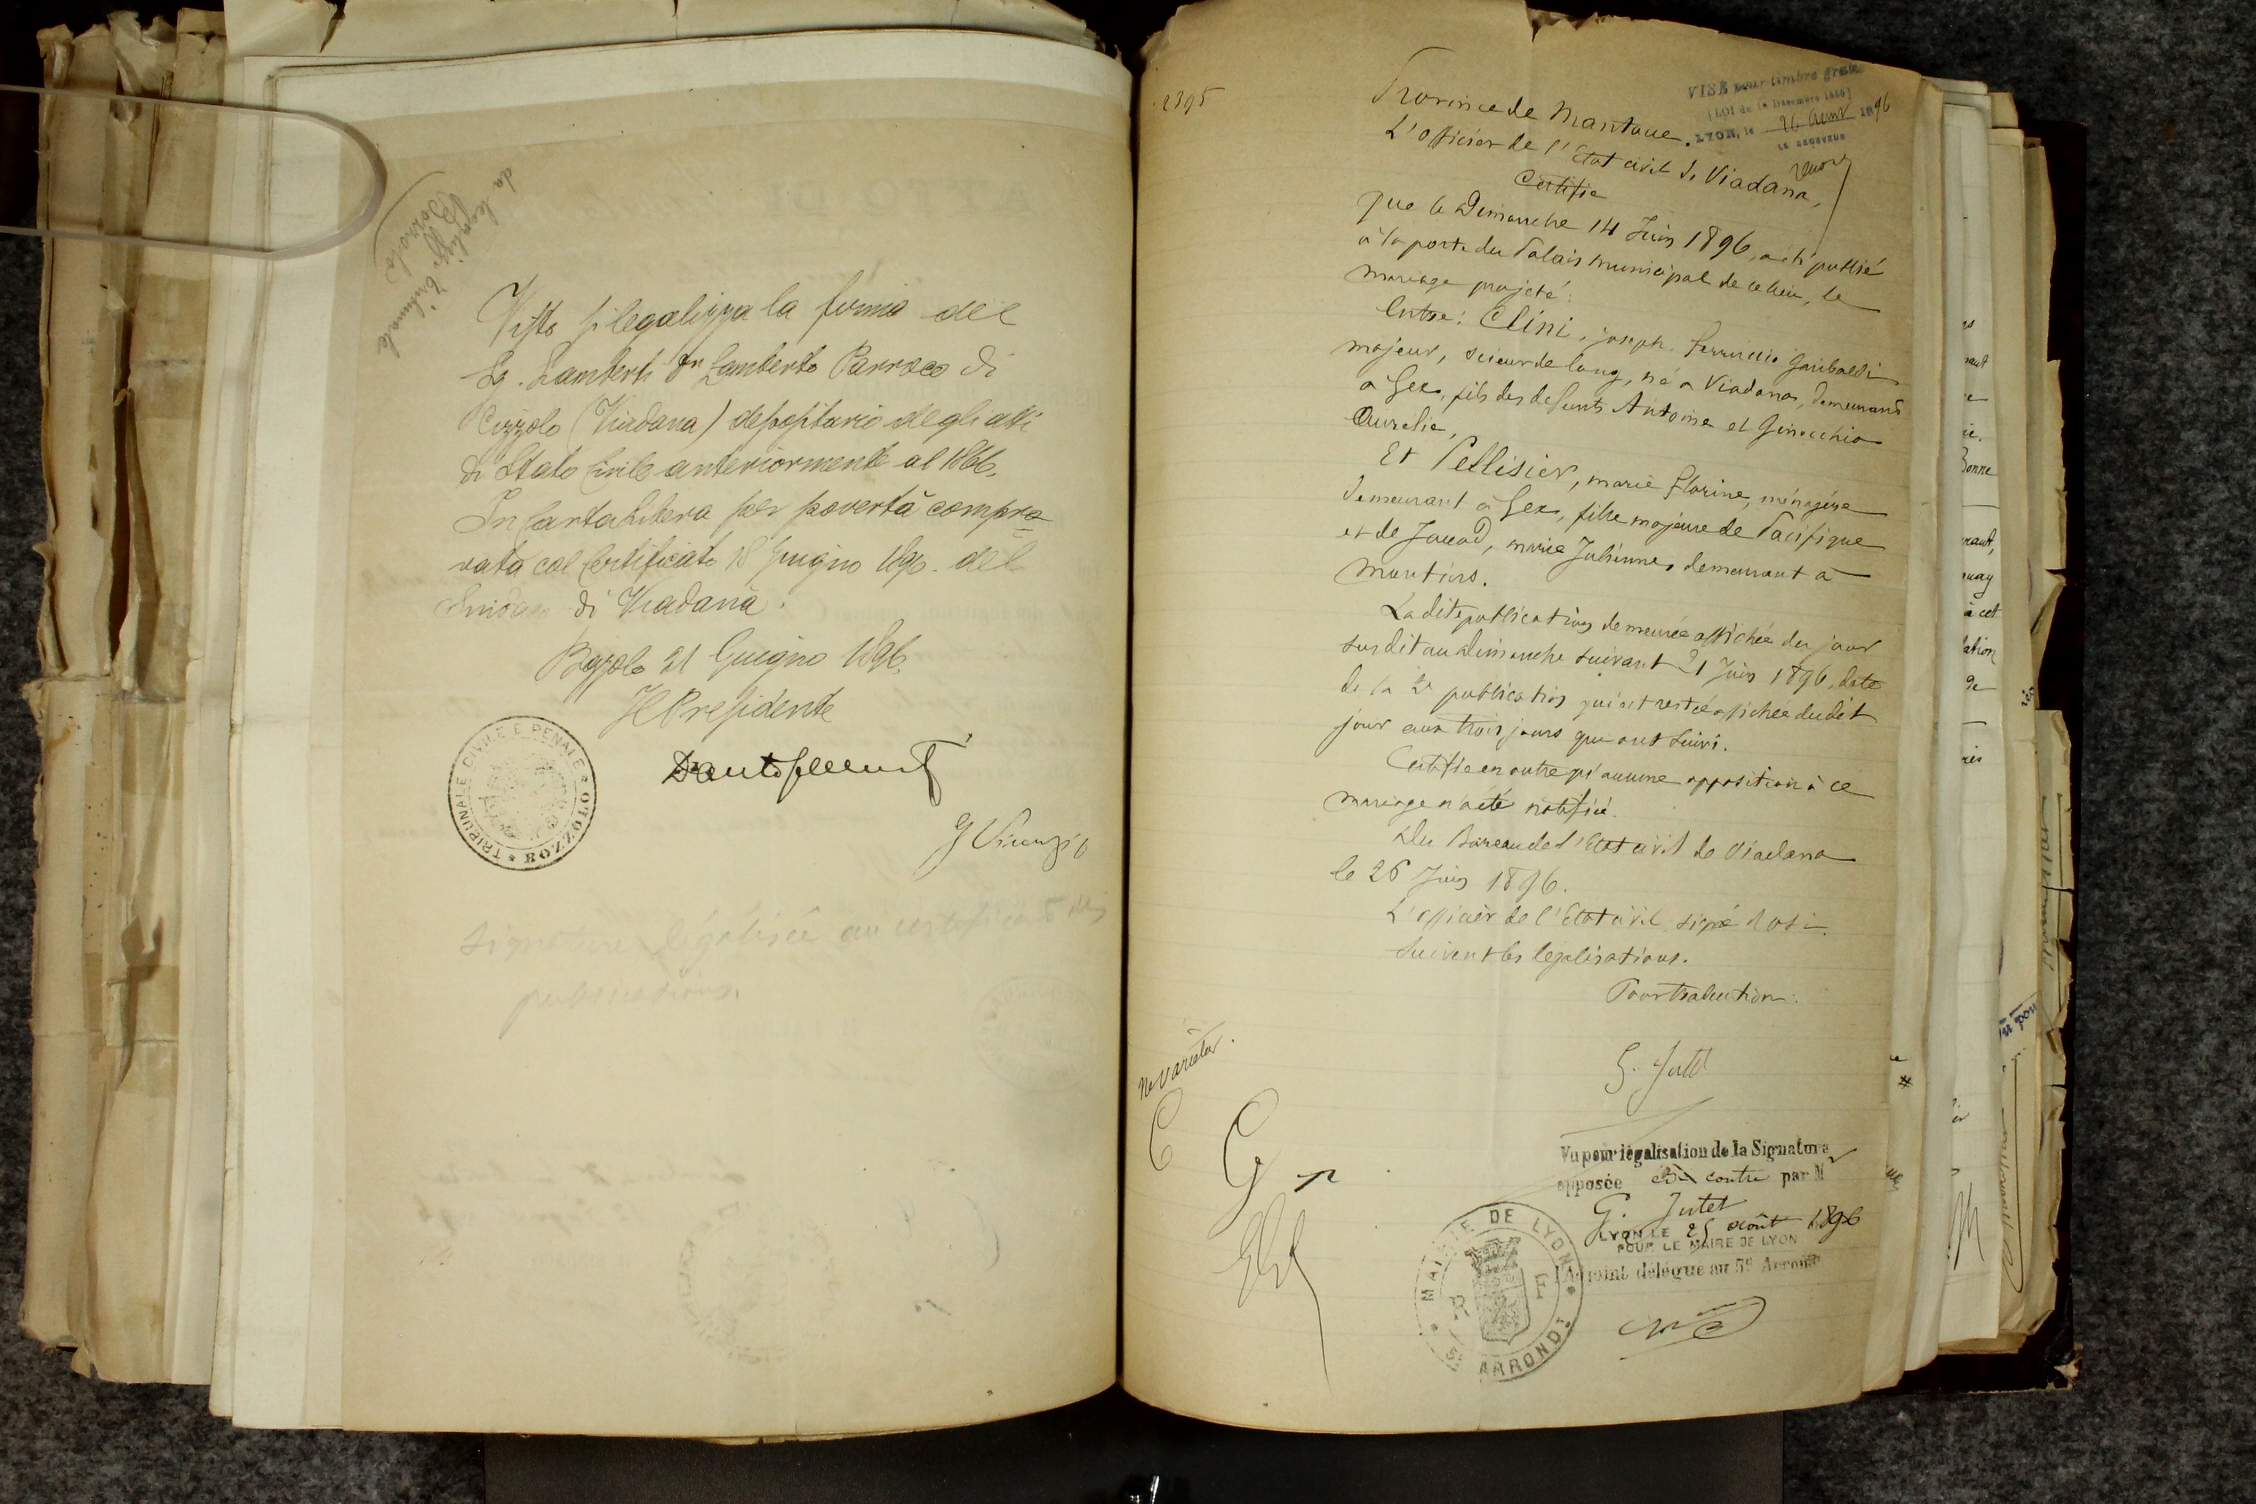 da legalizz. Tribunale
Bozzolo
Visto si legalizza la firma del
Sg. Lamberti Dn Lamberto Parroco di
Cizzolo (Viadana) depositario degli atti
di Stato Civile anteriormente al 1866.
In Carta Libera per povertà compro
vata col Certificato 18 Giugno 1896. del
Sindaco di Viadana.
Bozzolo 21 Giugno 1896.
Il Presidente
TRIBUNALE CIVILE E PENALE * BOZZOLO *
Signature légalisée au certificat des
publications.
2395
VISÉ pour timbre gratis
LYON, le 26 Aout 1896
LE RECEVEUR
Province de Mantoue.
L'officier de l'Etat civil de Viadana,
Certifie
que le Dimanche 14 Juin 1896, a été publié
à la porte du Palais municipal de ce lieu, le
mariage projeté:
Entre: Clini, joseph Ferruccio Garibaldi
majeur, scieur de long, né a Viadana, demeurant
a Gex, fils des defunts Antoine et Ginocchio
Aurelie,
Et Pellisier, marie florine, ménagère
demeurant à Gex, fille majeure de Pacifique
et de Jacod, marie Julienne, demeurant à
Moutiers.
La dite publication demeurée affichée du jour
susdit au Dimanche suivant 21 Juin 1896, date
de la 2e publication qui est restée affichée dudit
jour aux trois jours qui ont suivi.
Certifie en outre qu'aucune opposition à ce
mariage n'a été notifiée.
Du Bureau de l'Etat civil de Viadana
le 26 Juin 1896.
L'officier de l'Etat civil signé Rosi.
Suivent les legalisations.
Pour traduction:
G. Jutet
Ne varietur.
Vu pour légalisation de la Signature
apposée ci contre par Mr
G. Jutet
LYON LE 25 août 1896
POUR LE MAIRE DE LYON
l'Adjoint délégué au 5e Arrond
MAIRIE DE LYON * 5e ARRONDt *
R F